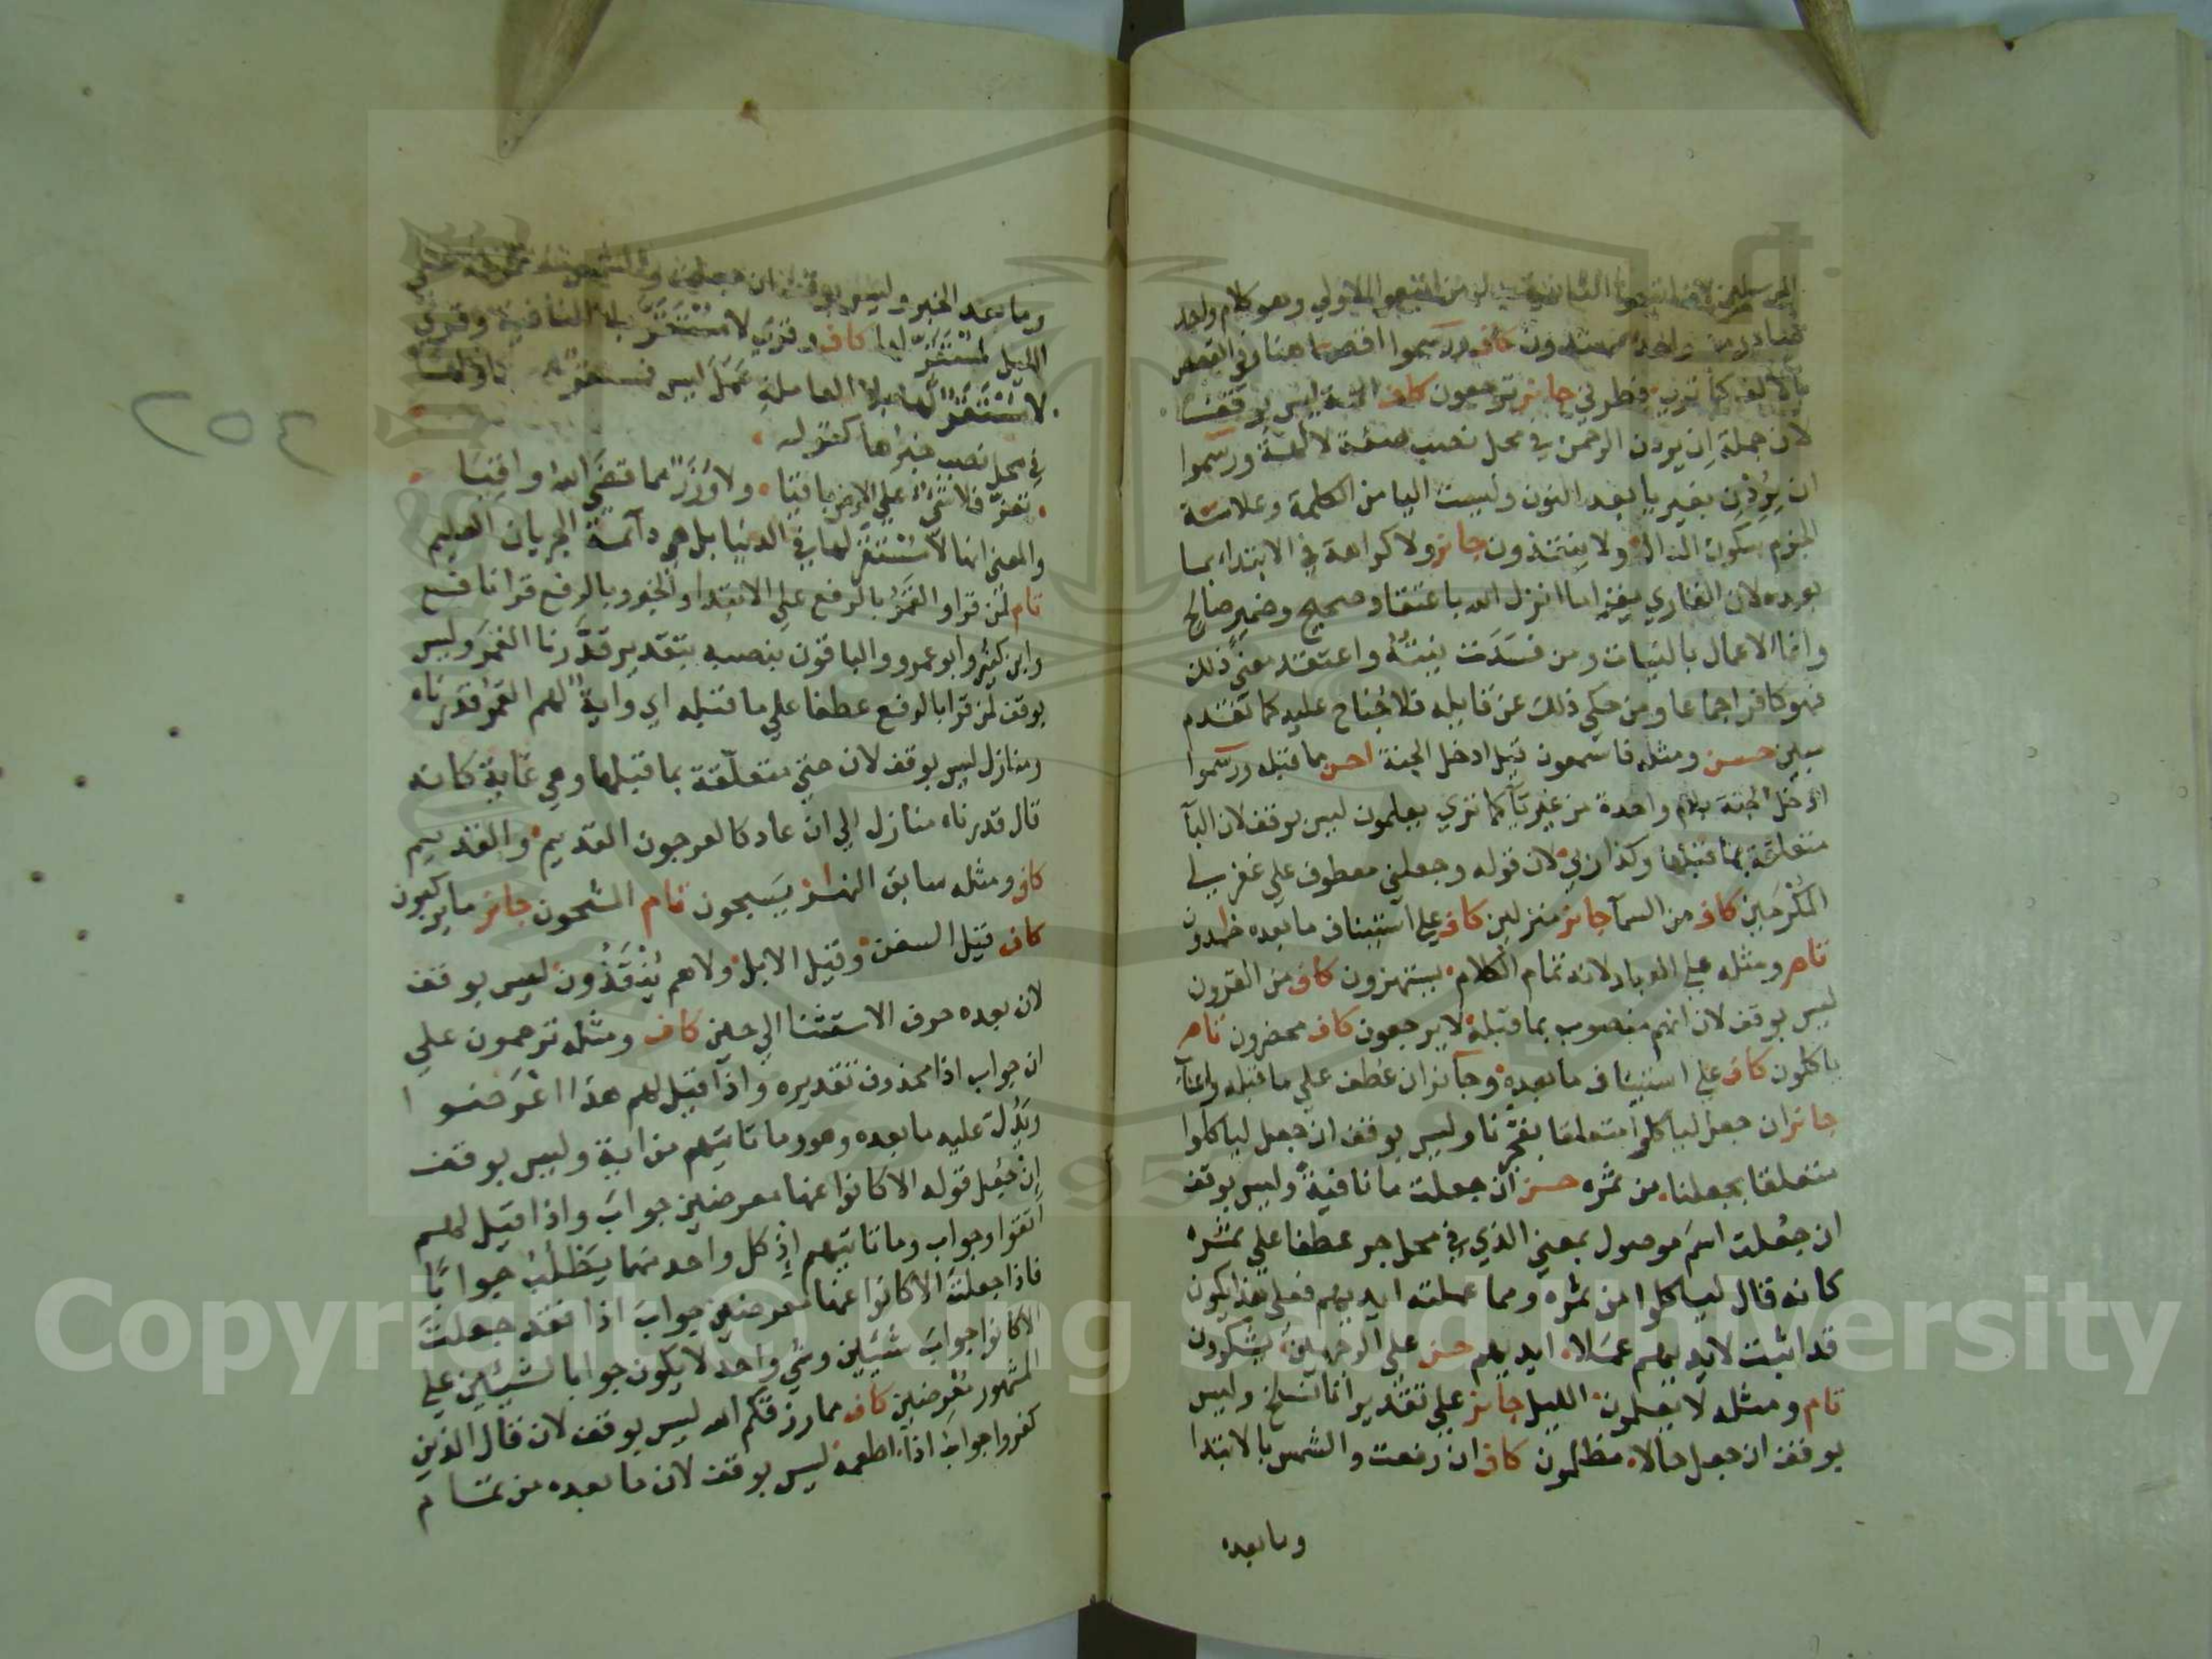 المرسلين لان اتبعوا الثانية بدل من اتبعوا الاولي وهو كلام واحد
صادر من واحد مهتدون كاف ورسموا اقصا هنا وفي القصص
بالالف كما تري فطرني جايز ترجعون كاف الهة ليس بوقف
لان جملة ان يردن الرحمن في محل نصب صفة لالهة ورسموا
ان يردن بغير يا بعد النون وليست اليا من الكلمة وعلامة
الجزم سكون الدال ولا ينقذون جايز ولا كراهة في الابتداء بما
بعده لان القاري يقرا ما انزل الله باعتقاد صحيح وضمير صالح
وانما الاعمال بالنيات ومن فسدت نيته واعتقد معني ذلك
فهو كافر اجماعا ومن حكي ذلك عن قايله فلا جناح عليه كما تقدم
مبين حسن ومثله فاسمعون قيل ادخل الجنة احسن مما قبله ورسموا
ادخل الجنة بلام واحدة من غير يآ كما تري يعلمون ليس بوقف لان البآ
متعلقة بما قبلها وكذا ربي لان قوله وجعلني معطوف علي غفر لي
المكرمين كاف من السمآ جايز منزلين كاف علي استيناف ما بعده خامدون
تام ومثله علي العباد لانه تمام الكلام يستهزون كاف من القرون
ليس بوقف لان انهم منصوب بما قبله لا يرجعون كاف محضرون تام
ياكلون كاف علي استيناف ما بعده وجآيز ان عطف علي ما قبله واعناب
جايز ان جعل لياكلوا متعلقا بفجرنا وليس بوقف ان جعل لياكلوا
متعلقا بجعلنا من ثمره حسن ان جعلت ما نافية وليس بوقف
ان جعلت اسم موصول بمعني الذي في محل جر عطفا علي ثمره
كانه قال لياكلوا من ثمره ومما عملته ايديهم فعلي هذا يكون
قد اثبت لايديهم عملا ايديهم حسن علي الوجهين يشكرون
تام ومثله لا يعلمون الليل جايز علي تقدير انا نسلخ وليس
بوقف ان جعل حالا مظلمون كاف ان رفعت والشمس بالابتدا
وما بعده
وما بعد الخبر وليس بوقف ان جعلت
لمستقر لها كاف وقري لا مستقر بلا النافية وقري
لا مستقر لها بلا العاملة عمل ليس فمستقر
في محل نصب خبرها كقوله
تعز فلا شي علي الارض باقيا ولا وزر مما قضي الله واقيا
والمعني انها لا مستقر لها في الدنيا بل هي دآئمة الجريان العليم
تام لمن قرا والقمر بالرفع علي الابتدا والخبر وبالرفع قرا نافع
وابن كثير وابو عمرو والباقون بنصبه بتقدير قدرنا القمر وليس
بوقف لمن قرا بالرفع عطفا علي ما قبله اي واية لهم القمر قدرناه
ومنازل ليس بوقف لان حتي متعلقة بما قبلها وهي غاية كانه
قال قدرناه منازل الي ان عاد كالعرجون القديم والقديم
كاف ومثله سابق النهار يسبحون تام المشحون جايز ما يركبون
كاف قيل السفن وقيل الابل ولا هم ينقذون ليس بوقف
لان بعده حرف الاستثنا الي حين كاف ومثله ترحمون علي
ان جواب اذا محذوف تقديره واذا قيل لهم هذا اعرضوا
ويدل عليه ما بعده وهو وما تاتيهم من اية وليس بوقف
ان جعل قوله الا كانوا عنها معرضين جواب واذا قيل لهم
اتقوا وجواب وما تاتيهم اذ كل واحد منهما يطلب جوابا
فاذا جعلت الا كانوا عنها معرضين جواب اذا فقد جعلت
الا كانوا جواب شيين وشي واحد لا يكون جوابا لشيئين علي
المشهور معرضين كاف مما رزقكم الله ليس بوقف لان قال الذين
كفروا جواب اذا اطعمه ليس بوقف لان ما بعده من تمام
٢٥٤
Copyright © King Saud University
1957